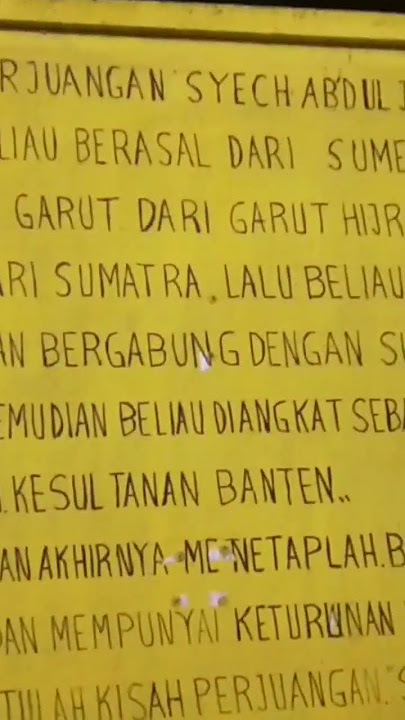 RJUANGAN SYECH ABDUL
LIAU BERASAL DARI SUME
GARUT DARI GARUT HIJR
ARI SUMATRA. LALU BELIAU
AN BERGABUNG DENGAN SU
EMUDIAN BELIAU DIANGKAT SEBA
. KESULTANAN BANTEN..
AN AKHIRNYA MENETAPLAH. B
DAN MEMPUNYAI KETURUNAN
TULAH KISAH PERJUANGAN."S